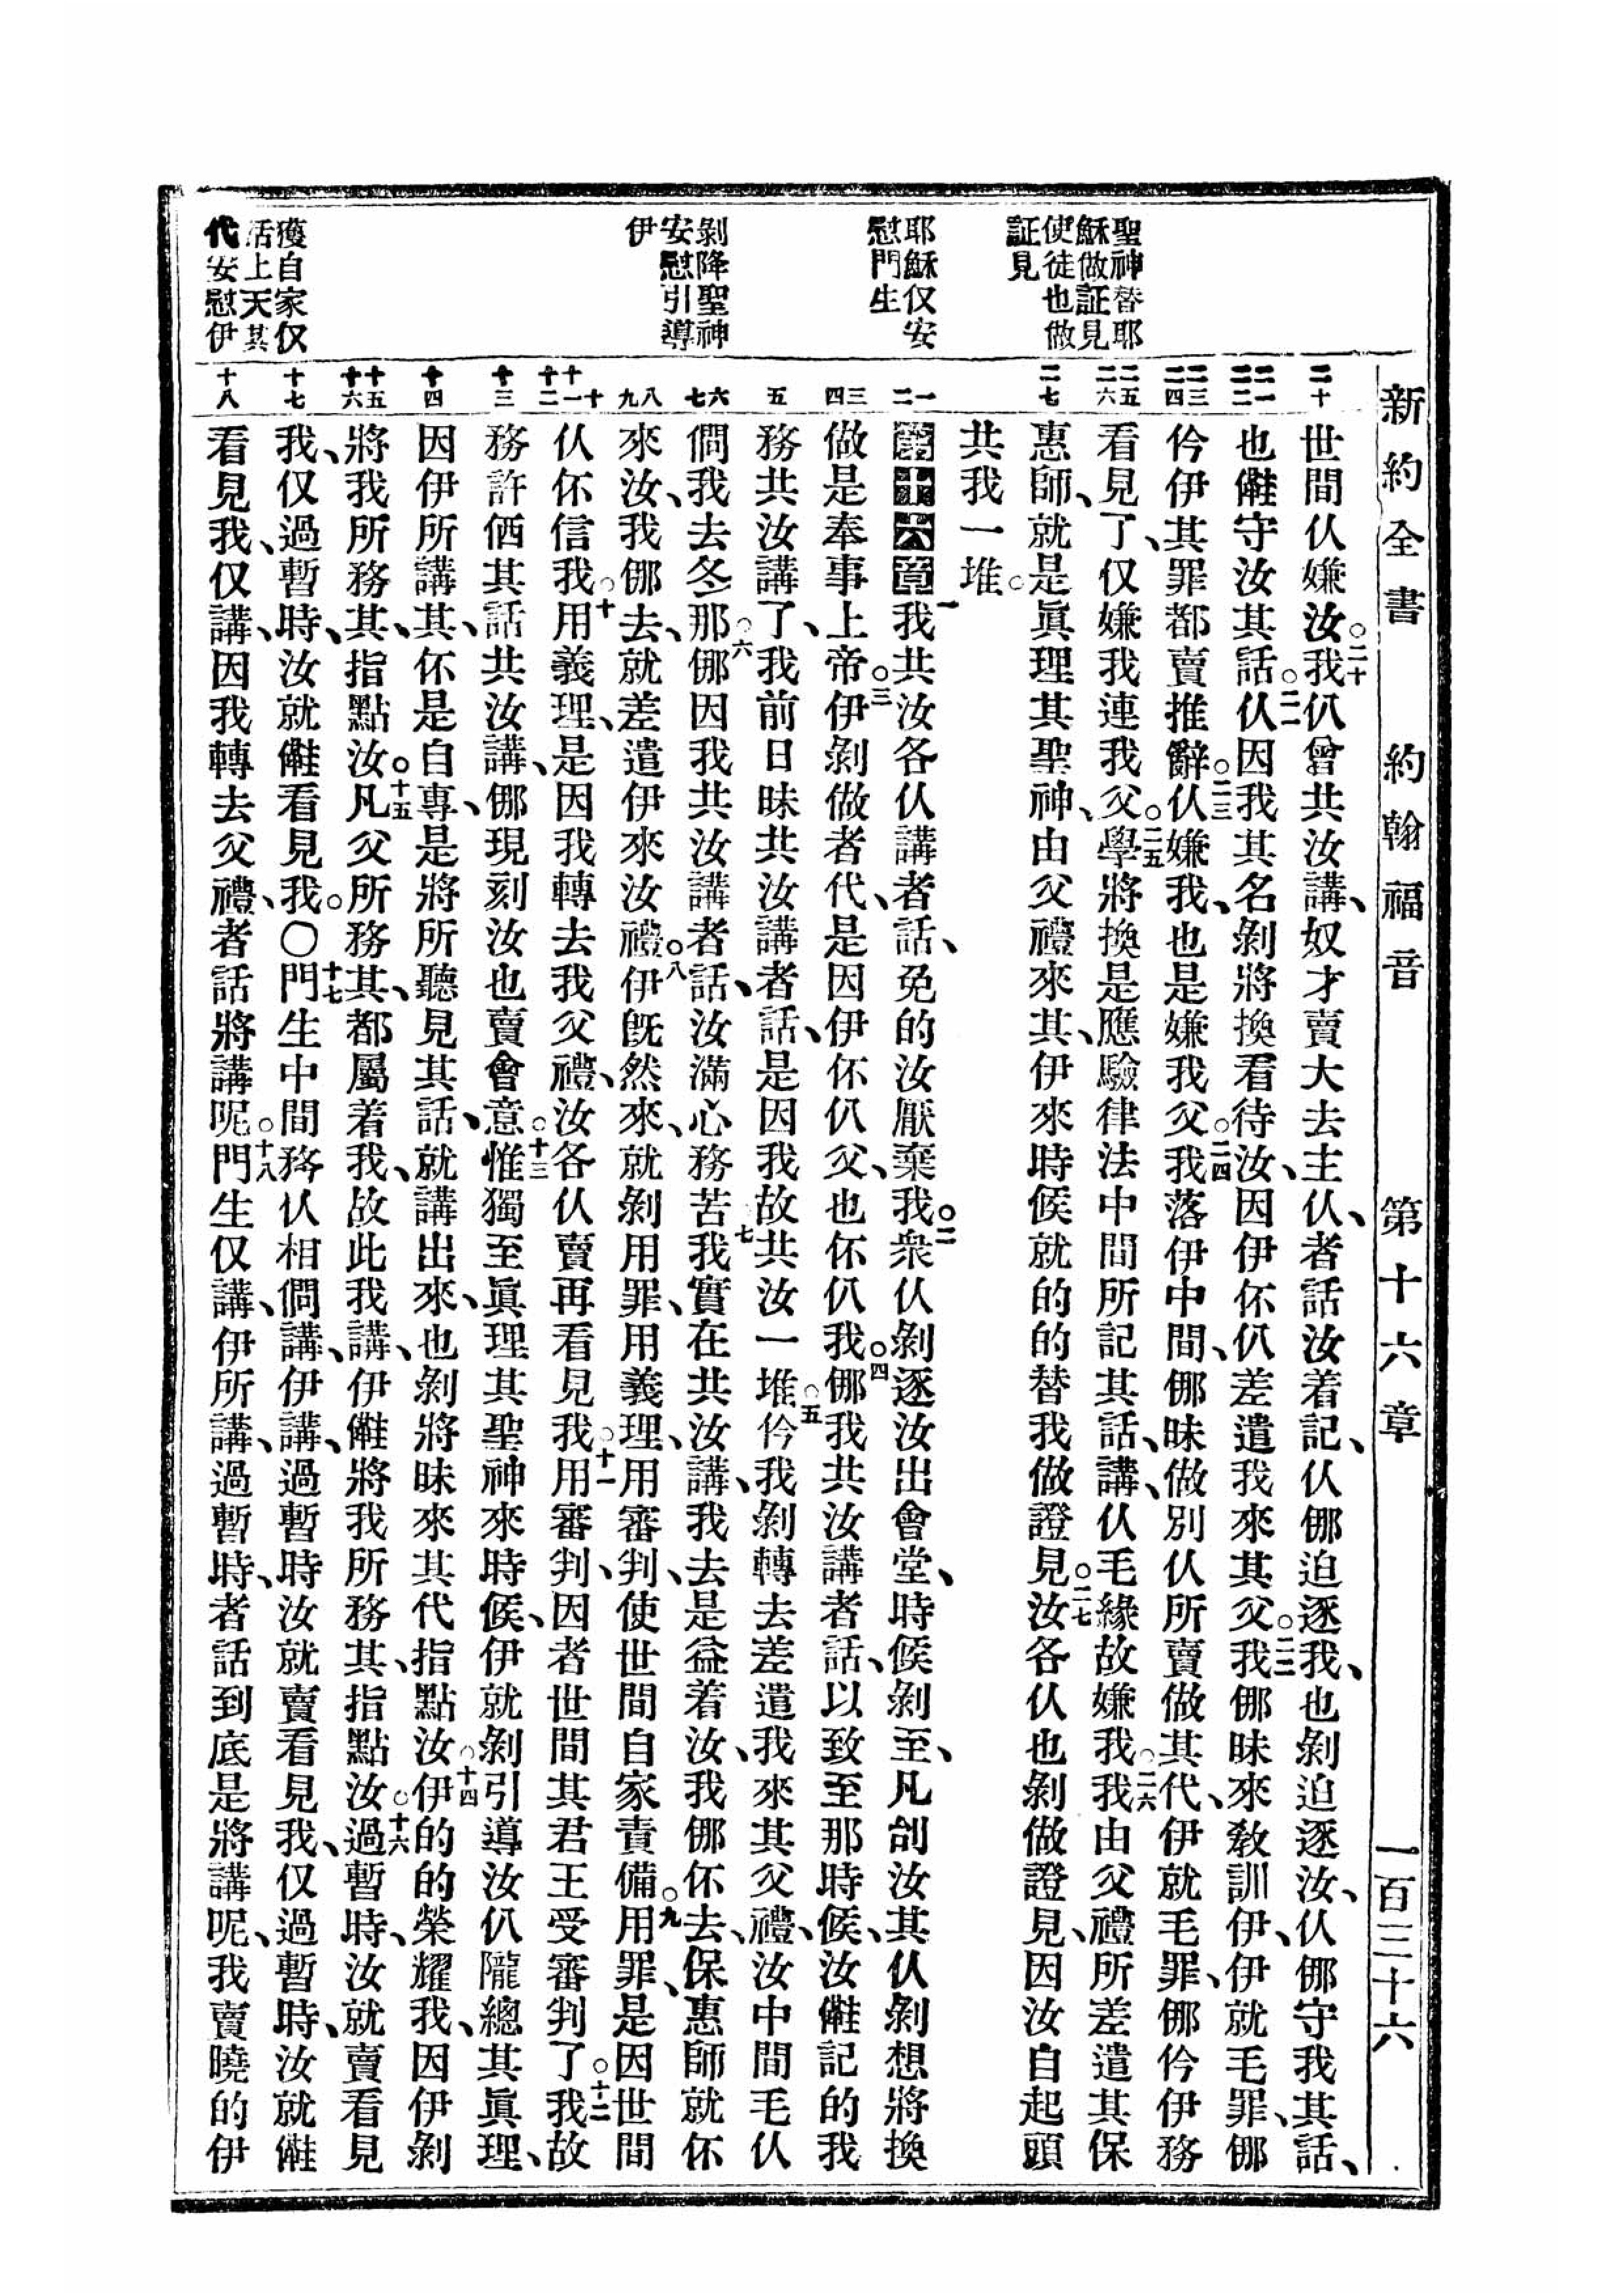 新約全書　約翰福音　第十六章　一百三十六
聖神替耶
穌做証見
使徒也做
証見
耶穌仅安
慰門生
剝降聖神
安慰引導
伊
獲自家仅
活上天其
代安慰伊
二十
二一 二二
二三 二四
二五 二六
二七
一 二
三 四
五
六 七
八 九
十 十一 十二
十三
十四
十五 十六
十七
十八
世間仈嫌汝○二十我仈曾共汝講、奴才賣大去主仈、者話汝着記、仈㑚迫逐我、也剝迫逐汝、仈㑚守我其話、
也㒁守汝其話○二一仈因我其名剝將換看待汝、因伊伓仈差遣我來其父○二二我㑚昧來教訓伊、伊就毛罪、㑚
仱伊其罪都賣推辭○二三仈嫌我、也是嫌我父○二四我落伊中間、㑚昧做別仈所賣做其代、伊就毛罪、㑚仱伊務
看見了、仅嫌我連我父○二五學將換是應驗律法中間所記其話、講、仈毛緣故嫌我○二六我由父禮所差遣其保
惠師、就是眞理其聖神、由父禮來其、伊來時候就的的替我做證見○二七汝各仈也剝做證見、因汝自起頭
共我一堆○
第十六章一我共汝各仈講者話、免的汝厭棄我○二衆仈剝逐汝出會堂、時候剝至、凡刣汝其仈剝想將換
做是奉事上帝○三伊剝做者代、是因伊伓仈父、也伓仈我○四㑚我共汝講者話、以致至那時候、汝㒁記的我
務共汝講了、我前日昧共汝講者話、是因我故共汝一堆○五仱我剝轉去差遣我來其父禮、汝中間毛仈
僴我去冬那○六㑚因我共汝講者話、汝滿心務苦○七我實在共汝講、我去是益着汝、我㑚伓去、保惠師就伓
來汝、我㑚去、就差遣伊來汝禮○八伊旣然來、就剝用罪、用義理、用審判、使世間自家責備○九用罪、是因世間
仈伓信我○十用義理、是因我轉去我父禮、汝各仈賣再看見我○十一用審判、因者世間其君王受審判了○十二我故
務許偭其話共汝講、㑚現刻汝也賣會意○十三惟獨至眞理其聖神來時候、伊就剝引導汝仈隴總其眞理、
因伊所講其、伓是自專、是將所聽見其話、就講出來、也剝將昧來其代指點汝○十四伊的的榮耀我、因伊剝
將我所務其、指點汝○十五凡父所務其、都屬着我、故此我講、伊㒁將我所務其、指點汝○十六過暫時、汝就賣看見
我、仅過暫時、汝就㒁看見我○〇十七門生中間務仈相僴講、伊講、過暫時汝就賣看見我、仅過暫時、汝就㒁
看見我、仅講、因我轉去父禮、者話將講呢○十八門生仅講、伊所講、過暫時、者話到底是將講呢、我賣曉的伊